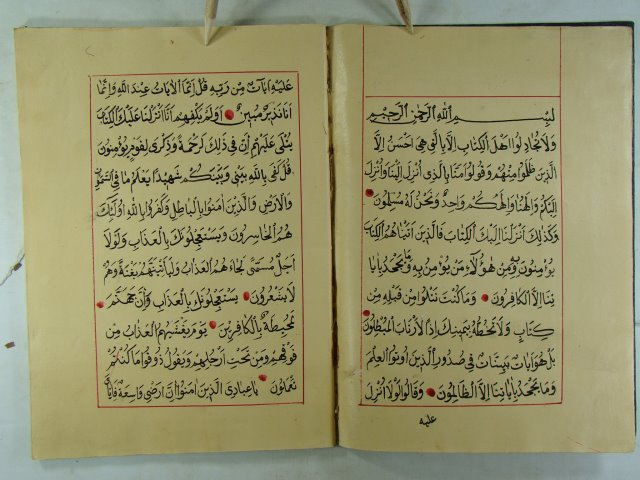 بسم الله الرحمن الرحيم
ولا تجادلوا اهل الكتاب الا بالتي هي احسن الا
الذين ظلموا منهم وقولوا امنا بالذي انزل الينا وانزل
اليكم والهنا والهكم واحد ونحن له مسلمون
وكذلك انزلنا اليك الكتاب فالذين اتيناهم الكتاب
يؤمنون به ومن هؤلاء من يؤمن به وما يجحد بايا
تنا الا الكافرون وما كنت تتلوا من قبله من
كتاب ولا تخطه بيمينك اذا لارتاب المبطلون
بل هو ايات بينات في صدور الذين اوتوا العلم
وما يجحد باياتنا الا الظالمون وقالوا لولا انزل
عليه
عليه ايات من ربه قل انما الايات عند الله وانما
انا نذير مبين اولم يكفهم انا انزلنا عليك الكتاب
يتلى عليهم ان في ذلك لرحمة وذكرى لقوم يؤمنون
قل كفى بالله بيني وبينكم شهيدا يعلم ما في السموات
والارض والذين امنوا بالباطل وكفروا بالله اولئك
هم الخاسرون ويستعجلونك بالعذاب ولولا
اجل مسمى لجاءهم العذاب ولياتينهم بغتة وهم
لا يشعرون يستعجلونك بالعذاب وان جهنم
لمحيطة بالكافرين يوم يغشيهم العذاب من
فوقهم ومن تحت ارجلهم ويقول ذوقوا ما كنتم
تعملون يا عبادي الذين امنوا ان ارضي واسعة فايا